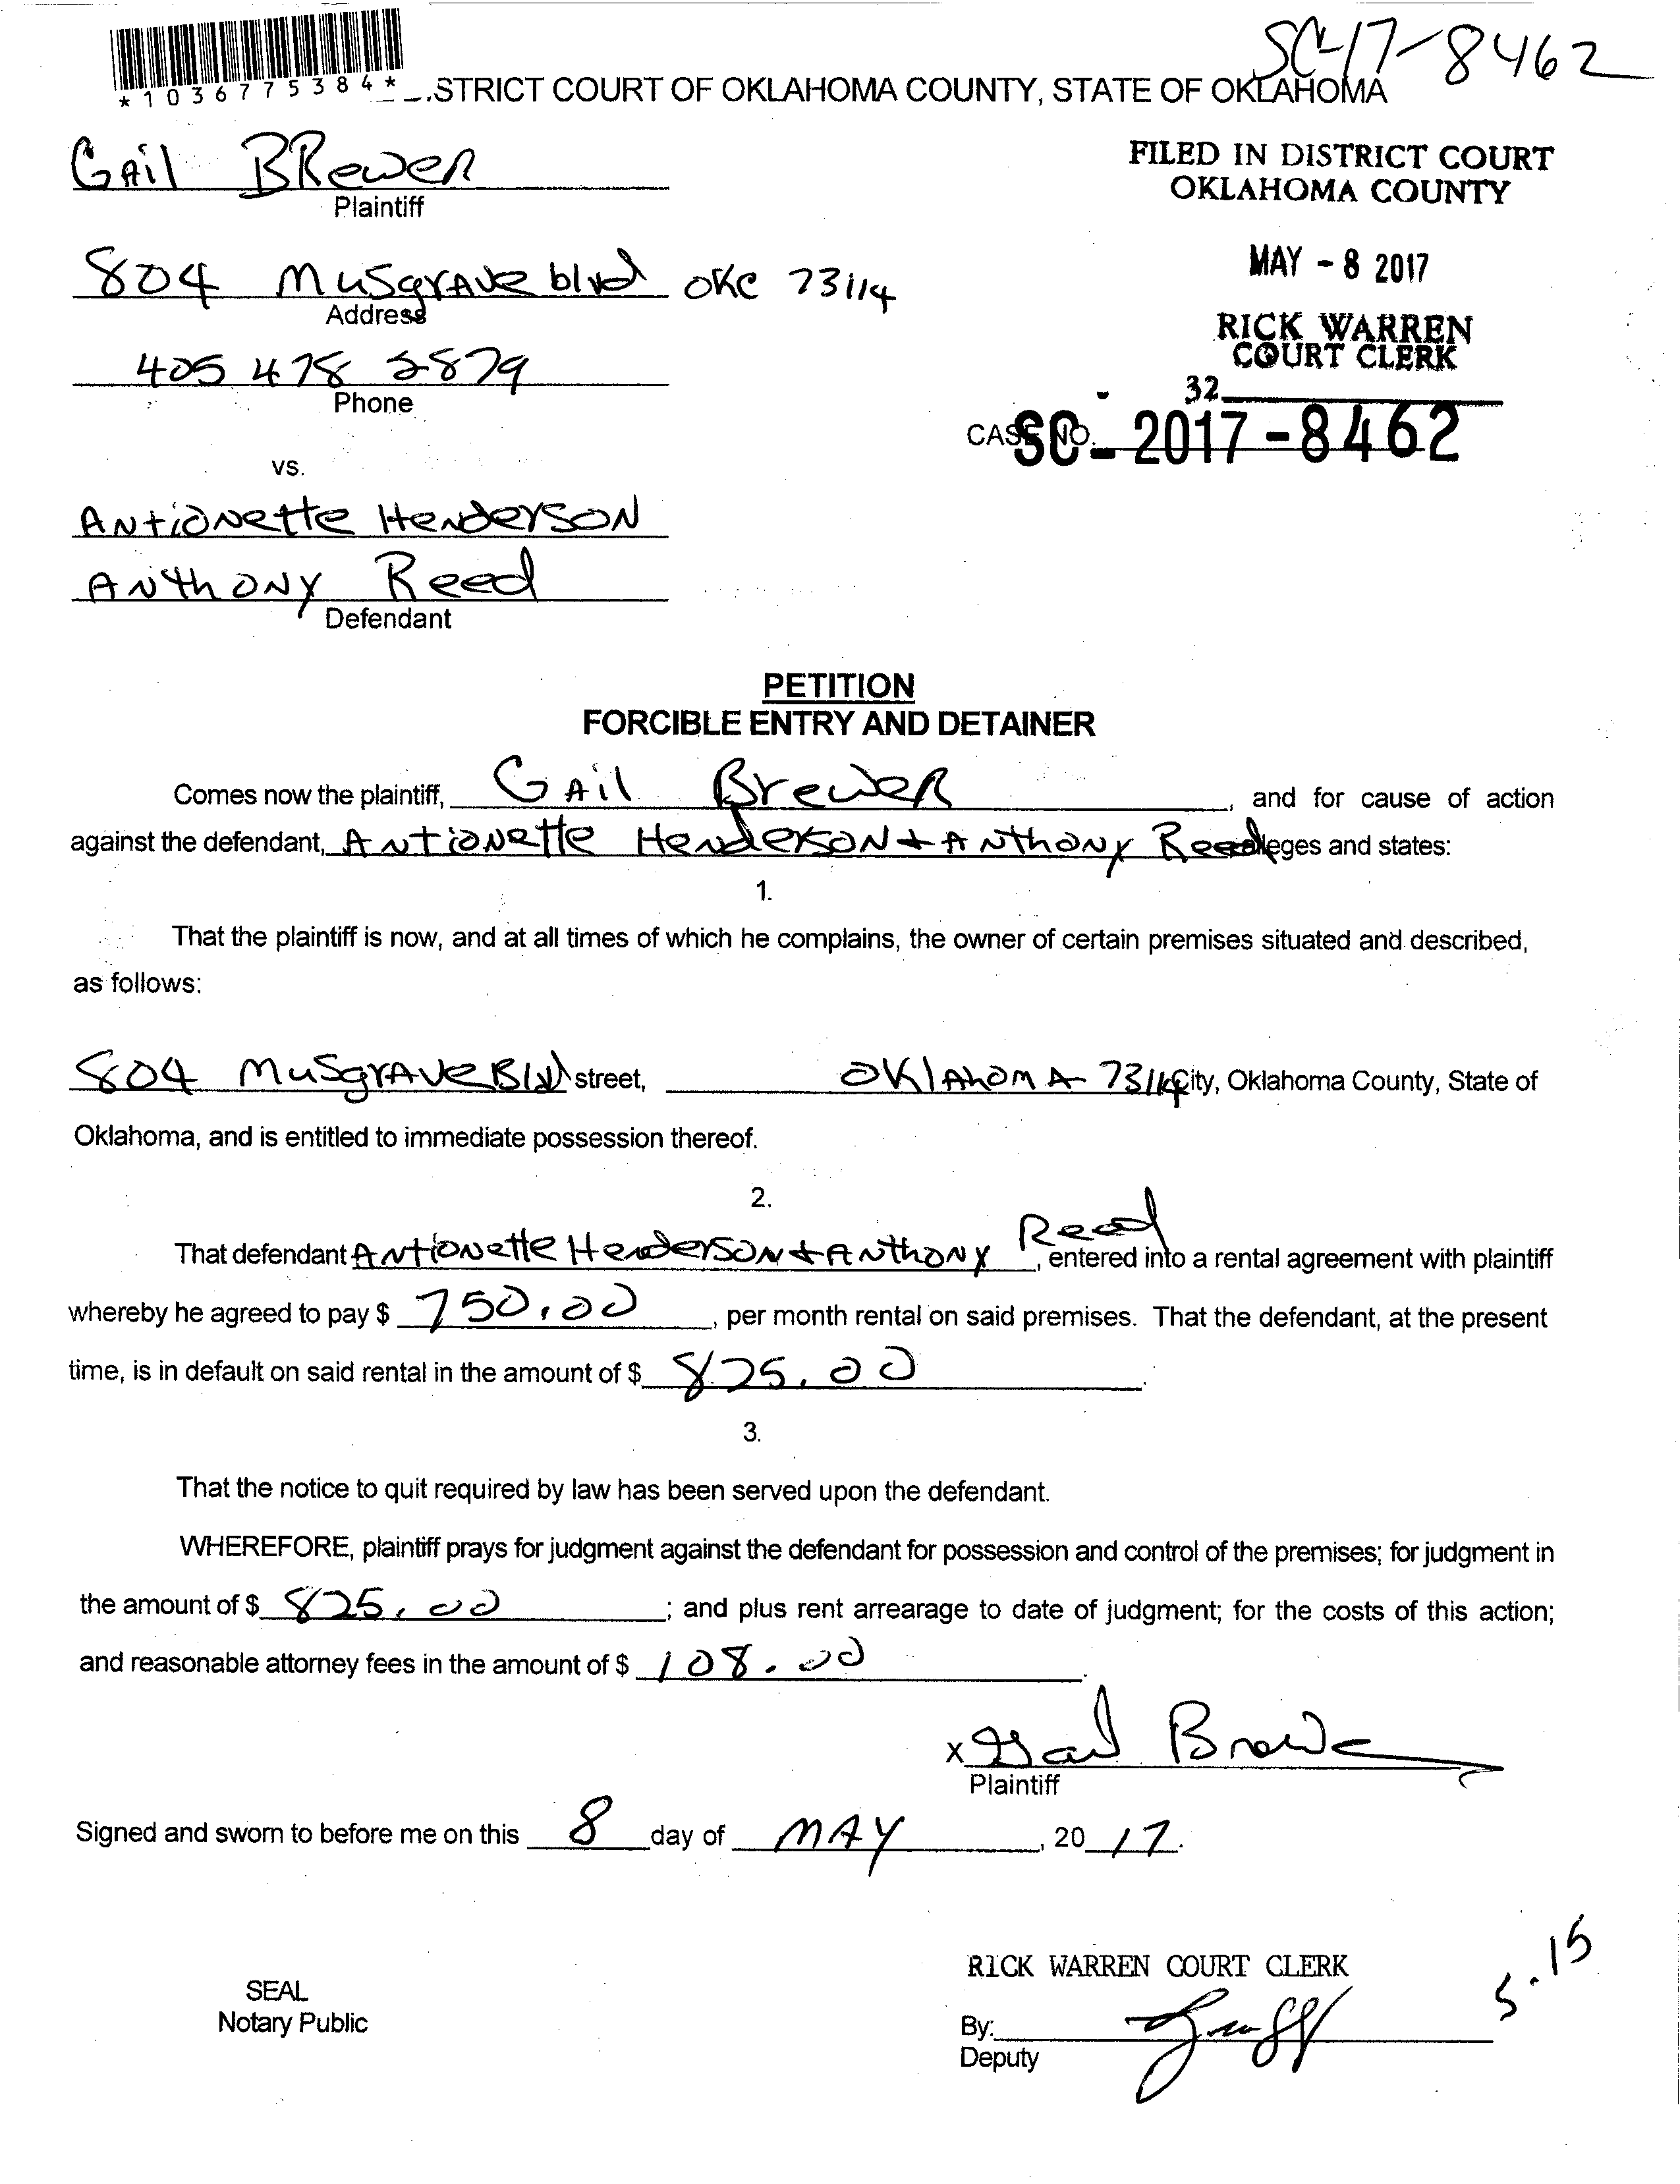 SC-17-8462
*1036775384*
STRICT COURT OF OKLAHOMA COUNTY, STATE OF OKLAHOMA
GAil BRewer
Plaintiff
FILED IN DISTRICT COURT
OKLAHOMA COUNTY
804 MusgrAve blvd OKC 73114
Address
MAY - 8 2017
RICK WARREN
COURT CLERK
405 478 2879
Phone
32
CASE NO. SC - 2017 - 8462
vs.
ANtioNette HeNdersoN
ANthoNy Reed
Defendant
PETITION
FORCIBLE ENTRY AND DETAINER
Comes now the plaintiff, GAil BreweR, and for cause of action
against the defendant, ANtioNette HeNdersoN + ANthoNy Reed alleges and states:
1.
That the plaintiff is now, and at all times of which he complains, the owner of certain premises situated and described,
as follows:
804 MusgrAve Blvd street, OklAhomA 73114 City, Oklahoma County, State of
Oklahoma, and is entitled to immediate possession thereof.
2.
That defendant ANtioNette HeNdersoN + ANthoNy Reed, entered into a rental agreement with plaintiff
whereby he agreed to pay $ 750.00, per month rental on said premises. That the defendant, at the present
time, is in default on said rental in the amount of $ 825.00.
3.
That the notice to quit required by law has been served upon the defendant.
WHEREFORE, plaintiff prays for judgment against the defendant for possession and control of the premises; for judgment in
the amount of $ 825.00; and plus rent arrearage to date of judgment; for the costs of this action;
and reasonable attorney fees in the amount of $ 108.00.
x Gail Brewer
Plaintiff
Signed and sworn to before me on this 8 day of MAY, 20 17.
5-15
RICK WARREN COURT CLERK
SEAL
Notary Public
By:
Deputy